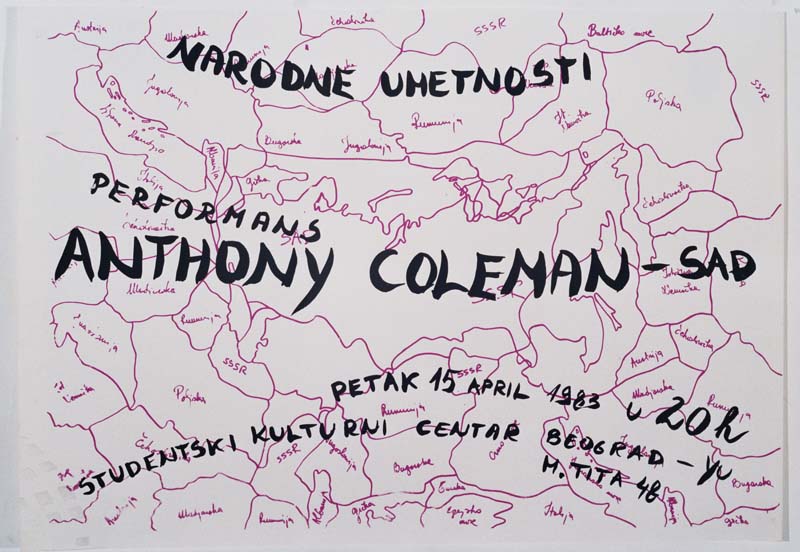 Austrija
Mađarska
Čehoslovačka
SSSR
Baltičko more
NARODNE UMETNOSTI
SSSR
Jugoslavija
Rumunija
Poljska
Bugarska
Jugoslavija
Albanija
Grčka
PERFORMANS
Čehoslovačka
ANTHONY COLEMAN – SAD
Mađarska
Rumunija
SSSR
Čehoslovačka
Austrija
Poljska
SSSR
Mađarska
Rumunija
PETAK 15 APRIL 1983 u 20h
Rumunija
STUDENTSKI KULTURNI CENTAR BEOGRAD – YU
SSSR
Bugarska
M. TITA 48
Bugarska
Mađarska
Rumunija
Albanija
Grčka
Egejsko more
Italija
Grčka